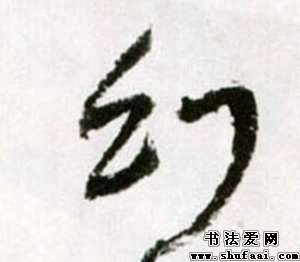 幻
书法爱网
www.shufaai.com